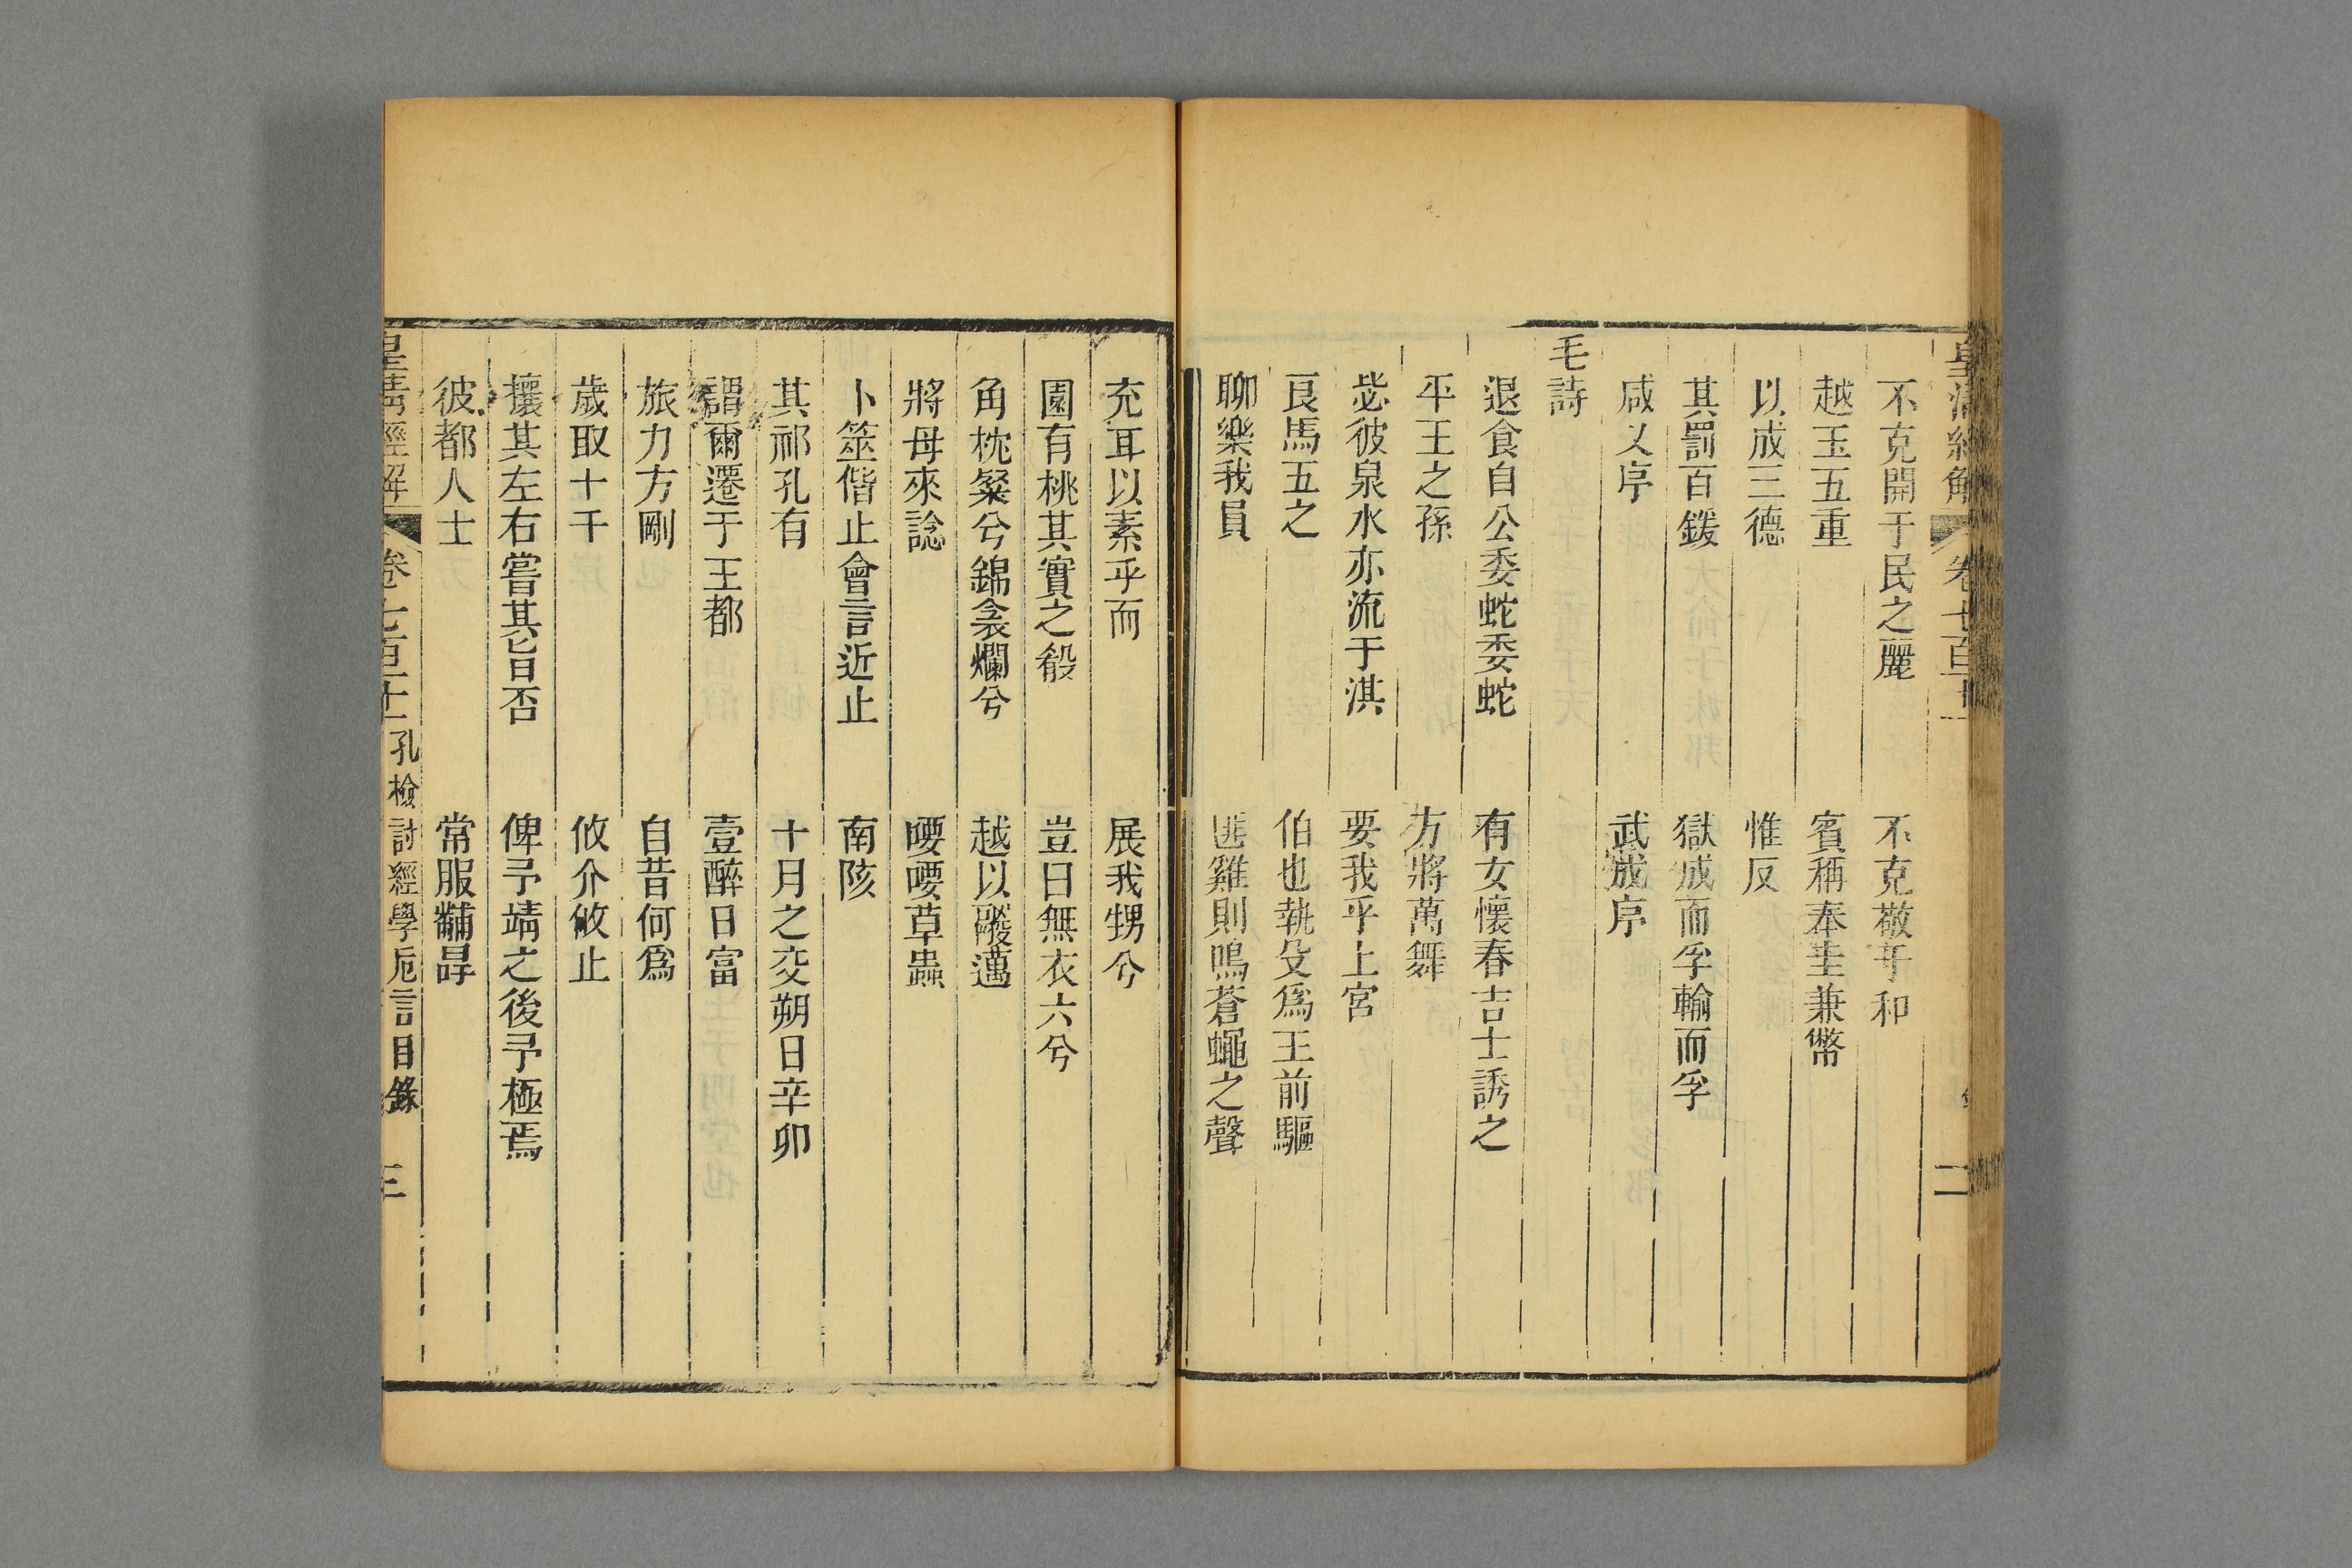 皇清經解 卷七百十一 二
不克開于民之麗 不克敬于和
越玉五重 賓稱奉圭兼幣
以成三德 惟反
其罰百鍰 獄成而孚輸而孚
咸乂序 武成序
毛詩
退食自公委蛇委蛇 有女懷春吉士誘之
平王之孫 方將萬舞
毖彼泉水亦流于淇 要我乎上宮
良馬五之 伯也執殳爲王前驅
聊樂我員 匪雞則鳴蒼蠅之聲
充耳以素乎而 展我甥兮
園有桃其實之殽 豈曰無衣六兮
角枕粲兮錦衾爛兮 越以鬷邁
將母來諗 喓喓草蟲
卜筮偕止會言近止 南陔
其祁孔有 十月之交朔日辛卯
謂爾遷于王都 壹醉日富
旅力方剛 自昔何爲
歲取十千 攸介攸止
攘其左右嘗其旨否 俾予靖之後予極焉
彼都人士 常服黼冔
皇清經解 卷七百十一 孔檢討經學卮言目錄 三